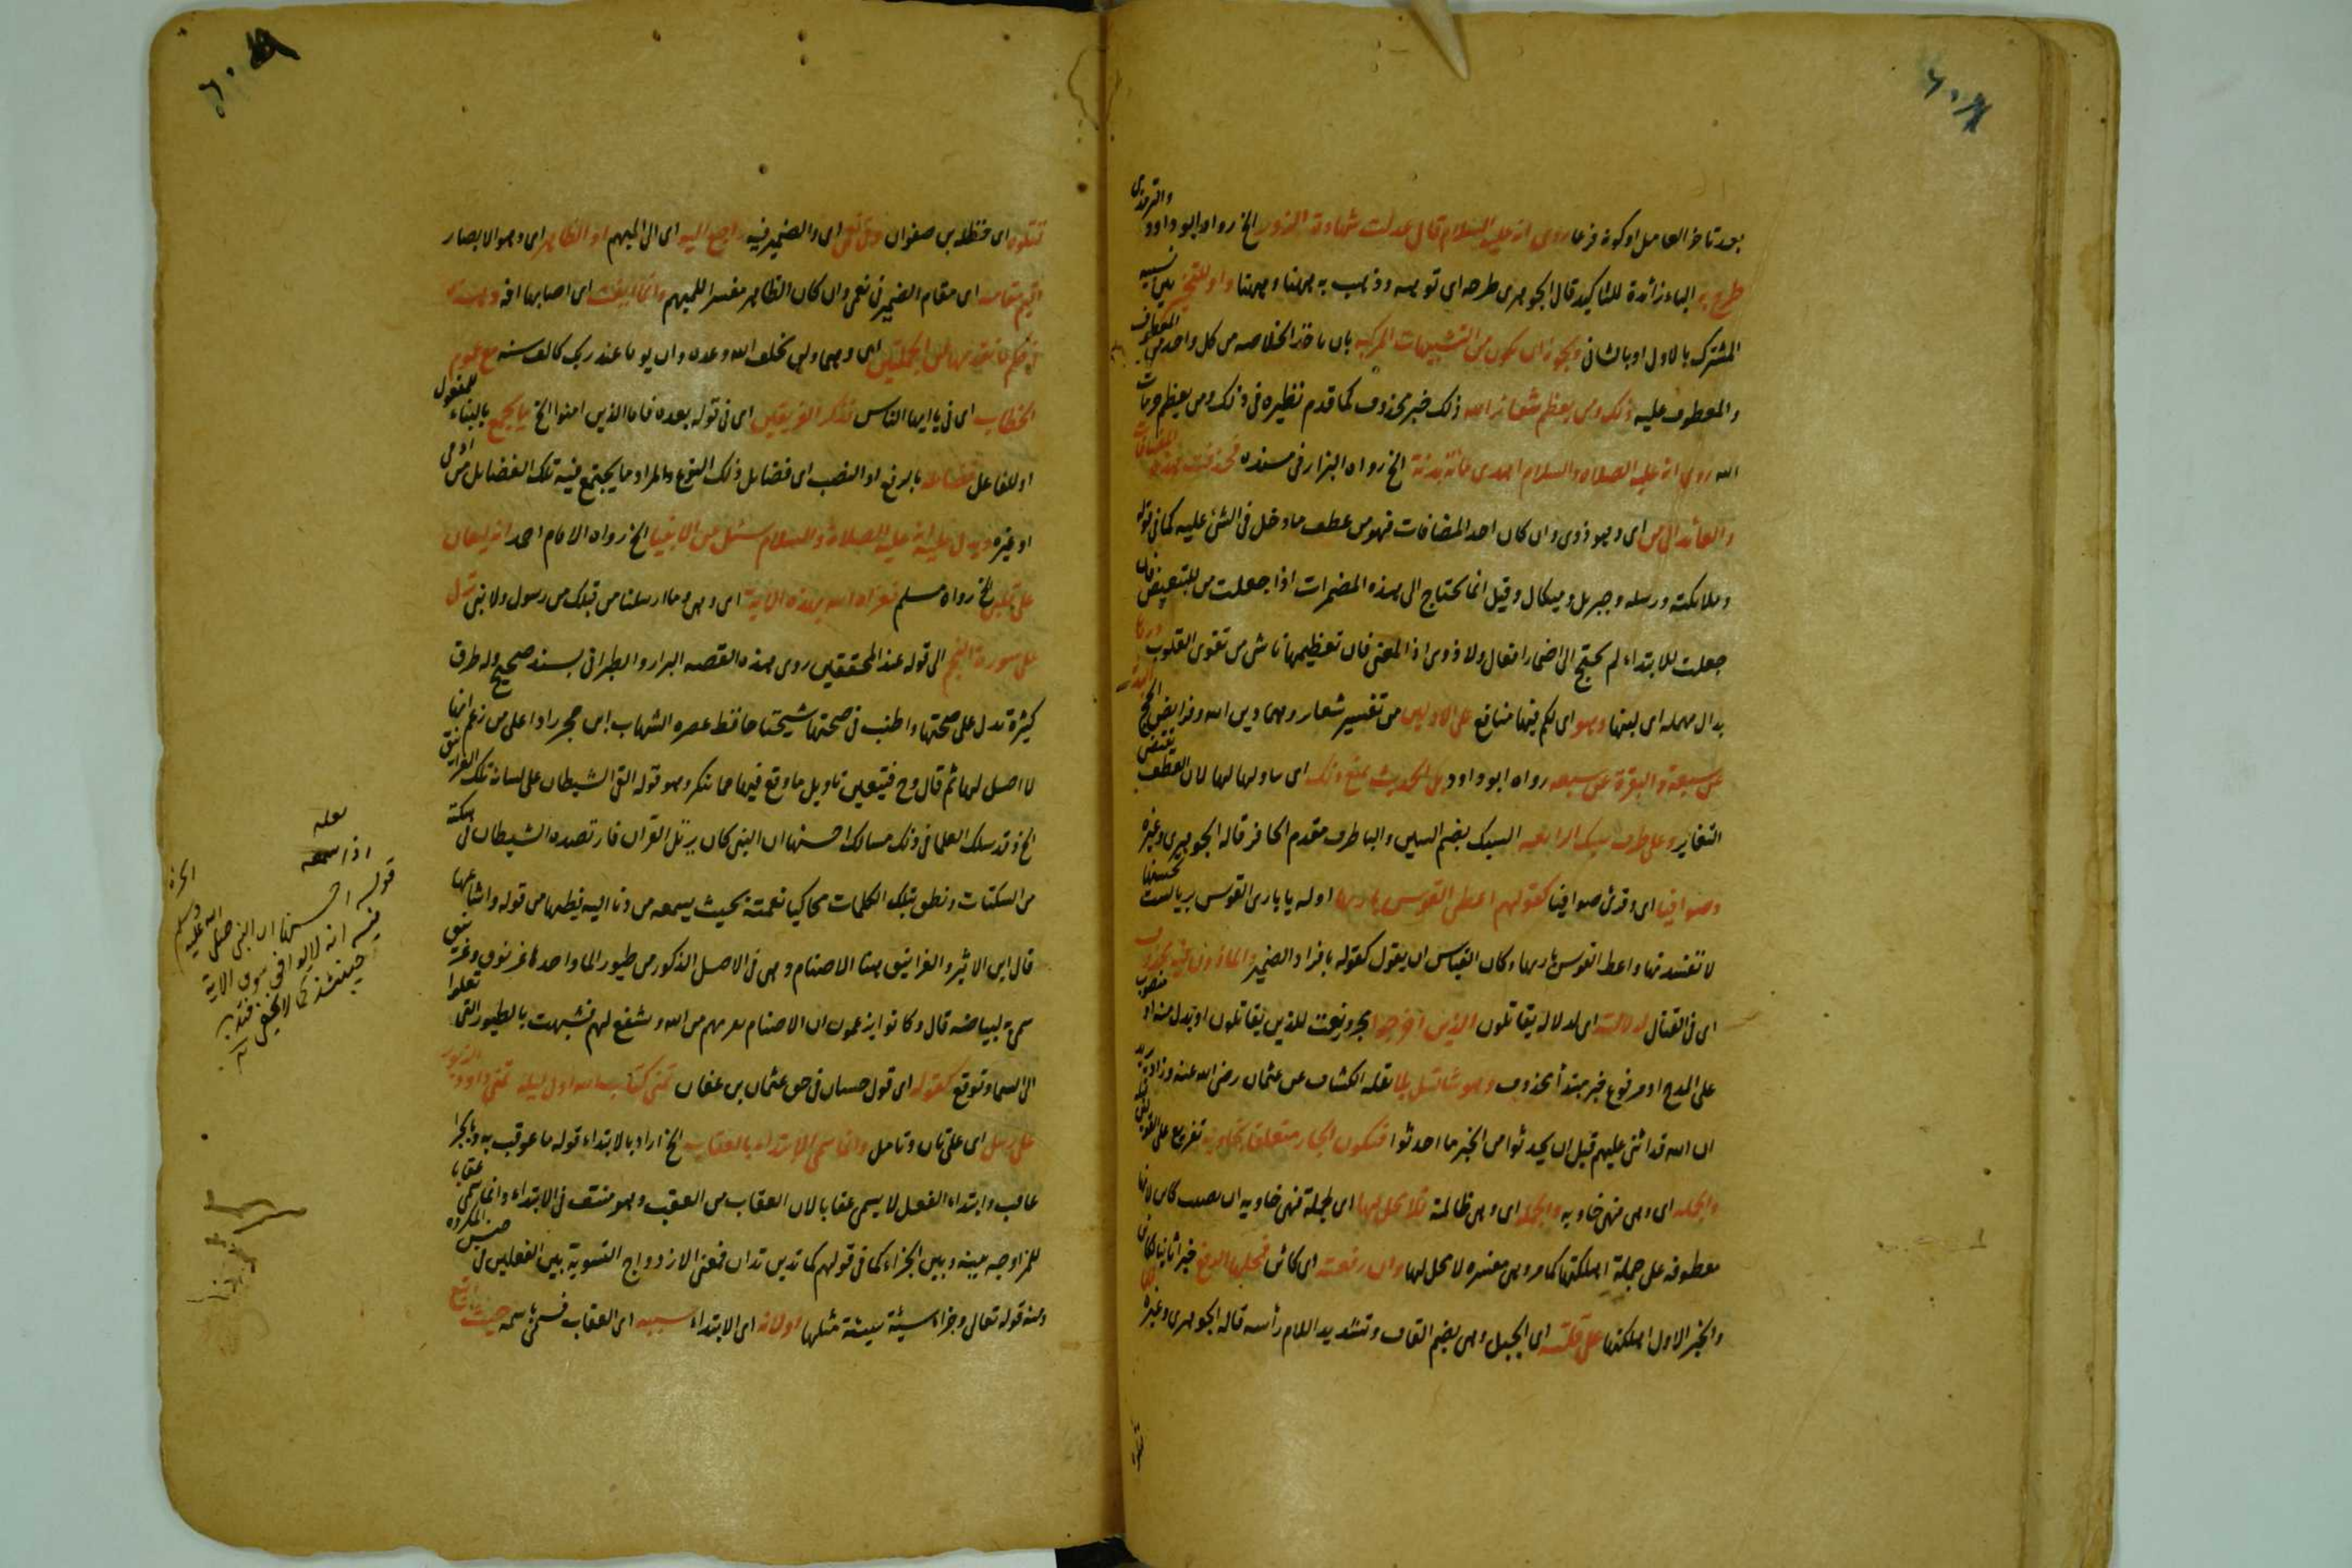 بعد تاخر العامل او كونه فرعا روى انه عليه السلام قال عدلت شهادة الزور الخ رواه ابو داود والترمذى
طرح به الباء زائدة للتاكيد قال الجوهرى طرحه اى توهه وذهب به ههنا وههنا واو للتخيير
المشترك بالاول او بالثانى ويجوز ان يكون من التشبيهات المركبة بان ياخذ الخلاصه من كل واحد من المعطوف
والمعطوف عليه ذلك ومن يعظم شعائر الله ذلك خبر محذوف كما قدم نظيره فى ذلك ومن يعظم حرمات
الله روى انه عليه الصلاة والسلام اهدى مائة بدنة الخ رواه البزار فى مسنده فحذفت هذه المضافات
والعائد الى من اى وهو ذوى وان كان احد المضافات فهو من عطف ما دخل فى الشئ عليه كما فى قوله
وملائكته ورسله وجبريل وميكال وقيل انما يحتاج الى هذه المضمرات اذا جعلت من للتبعيض فان
جعلت للابتداء لم يحتج الى اضمار افعال ولا ذوى اذ المعنى فان تعظيمها ناش من تقوى القلوب
بدال مهملة اى لبنها وهو اى لكم فيها منافع على الاولين من تفسير شعائر وهما دين الله وفرايض الحج
عن سبعة والبقرة عن سبعه رواه ابو داود بل الحديث يمنع ذلك اى تناولها لها لان العطف يقتضى
التغاير وعلى طرف سنبك الرابعه السنبك بضم السين والبا طرف مقدم الحافر قاله الجوهرى وغيره
وصوافيا اى وقرئ صوافيا كقولهم اعطى القوس باريها اوله يا بارى القوس بريا لست تحسنها
لا تفسدنها واعط القوس باريها وكان القياس ان يقول كقوله بافراد الضمير والماذون فيه محذوف
اى فى القتال لدلالته اى لدلالة يقاتلون الذين اخرجوا مجرور نعت للذين يقاتلون او بدل منه او منصوب
على المدح او مرفوع خبر مبتدأ محذوف وهو ثناء قبل بلاء نقله الكشاف عن عثمان رضى الله عنه وزاد يريد
ان الله قد اثنى عليهم قبل ان يحدثوا من الخير ما احدثوا فيكون الجار متعلقا بخاوية تفريع على القول
والجملة اى وهى فهى خاويه والجملة اى وهى ظالمة فلا محل لها اى لجملة فهى خاويه ان نصب كاين لانها
معطوفه على جملة اهلكناها كما مر وهى مفسره لا محل لها وان رفعته اى كاين فمحلها الرفع خبرا ثانيا لكاين
والخبر الاول اهلكناها على قلته اى الجبل وهى بضم القاف وتشديد اللام رأسه قاله الجوهرى وغيره
قتلوه اى حنظلة بن صفوان اى والضمير فيه راجع اليه اى الى المبهم او الظاهر اى وهو الابصار
اقيم مقامه اى مقام الضمير فى تعمى وان كان الظاهر مفسرا للمبهم
اى وهى ولن يخلف الله وعده وان يوما عند ربك كالف سنه مع عموم
الخطاب اى فى يا ايها الناس لذكر الفريقين اى فى قوله بعده فاما الذين امنوا الخ ما يجمع بالبناء للمفعول
او للفاعل فضائله بالرفع او النصب اى فضايل ذلك النوع والمراد ما يجتمع فيه تلك الفضايل من ادمى
او غيره ويدل عليه انه عليه الصلاة والسلام سئل عن الانبياء الخ رواه الامام احمد انه ليغان
على قلبى الخ رواه مسلم فعزاه الله بهذه الاية اى وهى وما ارسلنا من قبلك من رسول ولا نبى نزل
على سورة النجم الى قوله عند المحققين روى هذه القصه البزار والطبرانى بسند صحيح وله طرق
كثيرة تدل على صحتها واطنب فى صحتها شيخنا حافظ عصره الشهاب ابن حجر رادا على من زعم انها
لا اصل لها ثم قال وح فيتعين تاويل ما وقع فيها مما ينكر وهو قوله القى الشيطان على لسانه تلك الغرانيق
الخ وقد سلك العلما فى ذلك مسالك احسنها ان النبى كان يرتل القران فارتصده الشيطان فى سكتة
من السكتات ونطق بتلك الكلمات محاكيا نغمته بحيث يسمعه من دنا اليه فظنها من قوله واشاعها
قال ابن الاثير والغرانيق ههنا الاصنام وهى فى الاصل الذكور من طيور الما واحدها غرنوق وغرنيق
سمى به لبياضه قال وكانوا يزعمون ان الاصنام تقربهم من الله وتشفع لهم فشبهت بالطيور التى تعلوا
الى السما وتوقع كقوله اى قول حسان فى حق عثمان بن عفان تمنى كتاب الله اول ليله تمنى داود الزبور
على رسل اى على تان وتامل وانما سمى الابتداء بالعقاب الخ اراد بالابتداء قوله ما عوقب به والجزا
عاقب وابتداء الفعل لا يسمى عقابا لان العقاب من العقب وهو منتف فى الابتداء وانما سمى عقابا
للمزاوجه بينه وبين الجزاء كما فى قولهم كما تدين تدان فمعنى الازدواج التسوية بين الفعلين فى جنس المكروه
ومنه قوله تعالى وجزاء سيئة سيئة مثلها او لانه اى الابتداء سببه اى العقاب فسمى باسمه حيث
قوله احسنها ان النبى صلى الله عليه وسلم الخ
فيه انه لا يوافق سوق الاية
حينئذ كما لا يخفى فتدبر